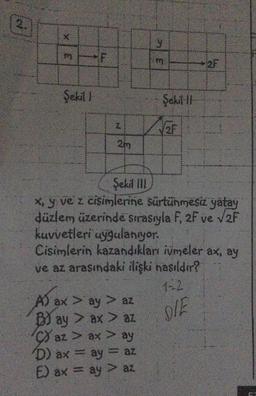 2.
x
m
F
Şekil I
y
m
2F
Şekil II
z
2m
√2F
Şekil III
x, y ve z cisimlerine sürtünmesiz yatay
düzlem üzerinde sırasıyla F, 2F ve √2F
kuvvetleri uygulanıyor.
Cisimlerin kazandıkları ivmeler ax, ay
ve az arasındaki ilişki nasıldır?
A) ax > ay > az
B) ay > ax > az
C) az > ax > ay
D) ax = ay = az
E) ax = ay > az